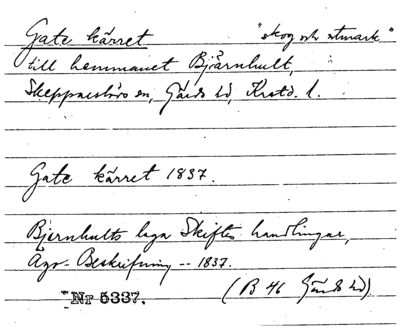 Gate kärret "skog och utmark"
till hemmanet Bjärnhult,
Skepparslövs sn, Gärds hd, Krstd. l.
Gate kärret 1837.
Bjernhults laga Skiftes handlingar,
Ägo-Beskrifning -- 1837.
Nr 5337. (B 46 Gärds hd).